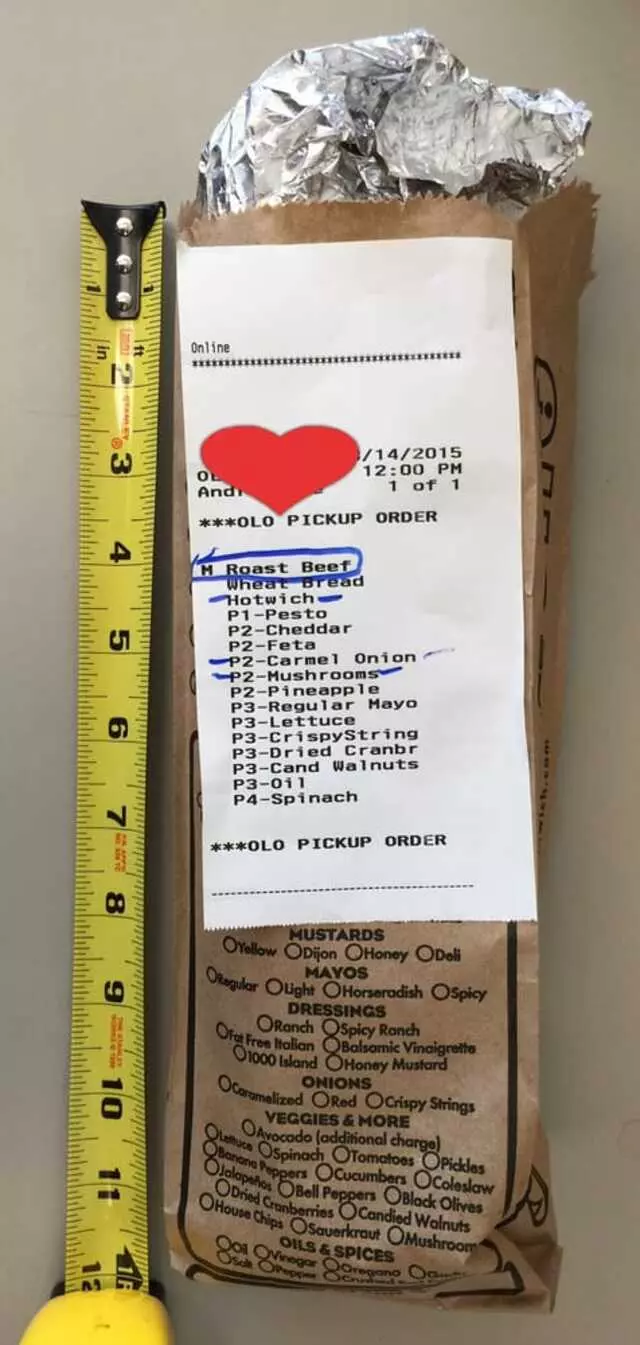 Online
****************************************
/14/2015
12:00 PM
1 of 1
***OLO PICKUP ORDER
M Roast Beef
Wheat Bread
Hotwich
P1-Pesto
P2-Cheddar
P2-Feta
P2-Carmel Onion
P2-Mushrooms
P2-Pineapple
P3-Regular Mayo
P3-Lettuce
P3-CrispyString
P3-Dried Cranbr
P3-Cand Walnuts
P3-Oil
P4-Spinach
***OLO PICKUP ORDER
MUSTARDS
Yellow Dijon Honey Deli
MAYOS
Regular Light Horseradish Spicy
DRESSINGS
Ranch Spicy Ranch
Fat Free Italian Balsamic Vinaigrette
1000 Island Honey Mustard
ONIONS
Caramelized Red Crispy Strings
VEGGIES & MORE
Avocado (additional charge)
Lettuce Spinach Tomatoes Pickles
Banana Peppers Cucumbers Coleslaw
Jalapeños Bell Peppers Black Olives
Dried Cranberries Candied Walnuts
House Chips Sauerkraut Mushroom
OILS & SPICES
Oil Vinegar Oregano
Salt Pepper
wich.com
in ft
1 1
2
STANLEY
3
4
5
6
7
8
9
10
11
12